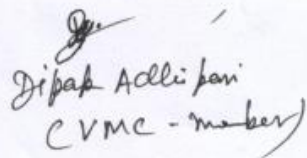 Dipak Adhikari
(VMC - member)